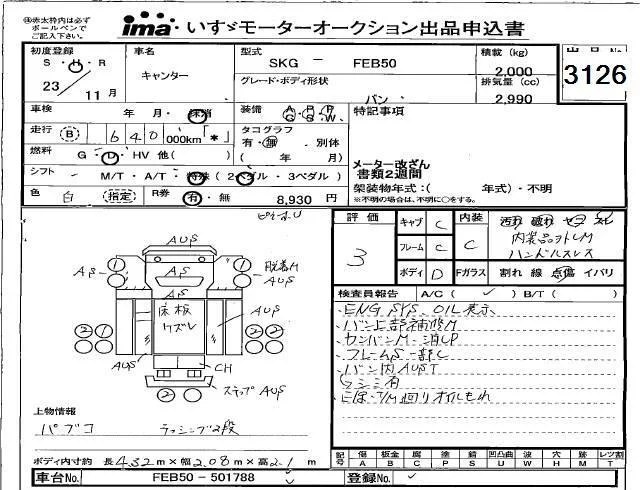 ㊟赤太枠内は必ず
ボールペンで
ご記入下さい。
ima いすゞモーターオークション出品申込書
初度登録
S・H・R
23
11月
車名
キャンター
型式
SKG － FEB50
グレード・ボディ形状
バン
積載 (kg)
2,000
排気量 (cc)
2,990
出品No.
3126
車検 年 月・抹消
装備
A P P
G S W
特記事項
走行 B 640 000km「*」
タコグラフ
有・無 別体
( 年 月)
燃料 G・D・HV 他( )
メーター改ざん
書類2週間
シフト M/T・A/T・特殊(2ペダル・3ペダル)
架装物年式:( 年式)・不明
※不明の場合は、不明に○をする。
色 白 (指定)
R券 有・無 8,930 円
評価
3
キャブ C
フレーム C
ボディ D
内装
C
Fガラス
汚れ 破れ コゲ スレ
内装品ヲトしM
ハンドルスレス
割れ 線 点傷 イバリ
AUS
1 1
AS
AS
脱着M
AUS
AS
床板
ワズレ
2 2
2 2
AUS
AUS
CH
ステップ AUS
2
検査員報告 A/C ( ✓ ) B/T ( )
・ENG SYS、OIL表示
・バン上部補修M
・カンバンM・消しP
・フレームS 一部C
・バン内AUST
・ラシミ有
上物情報
パブコ ラッシング2段
ボディ内寸約 長4.32m×幅2.08m×高2.1m
記号
傷 A
板金 B
腐 C
塗 P
錆 S
凹凸曲 U
波 W
穴 H
跡 M
レツ割 T
車台No. FEB50 - 501788
登録No.